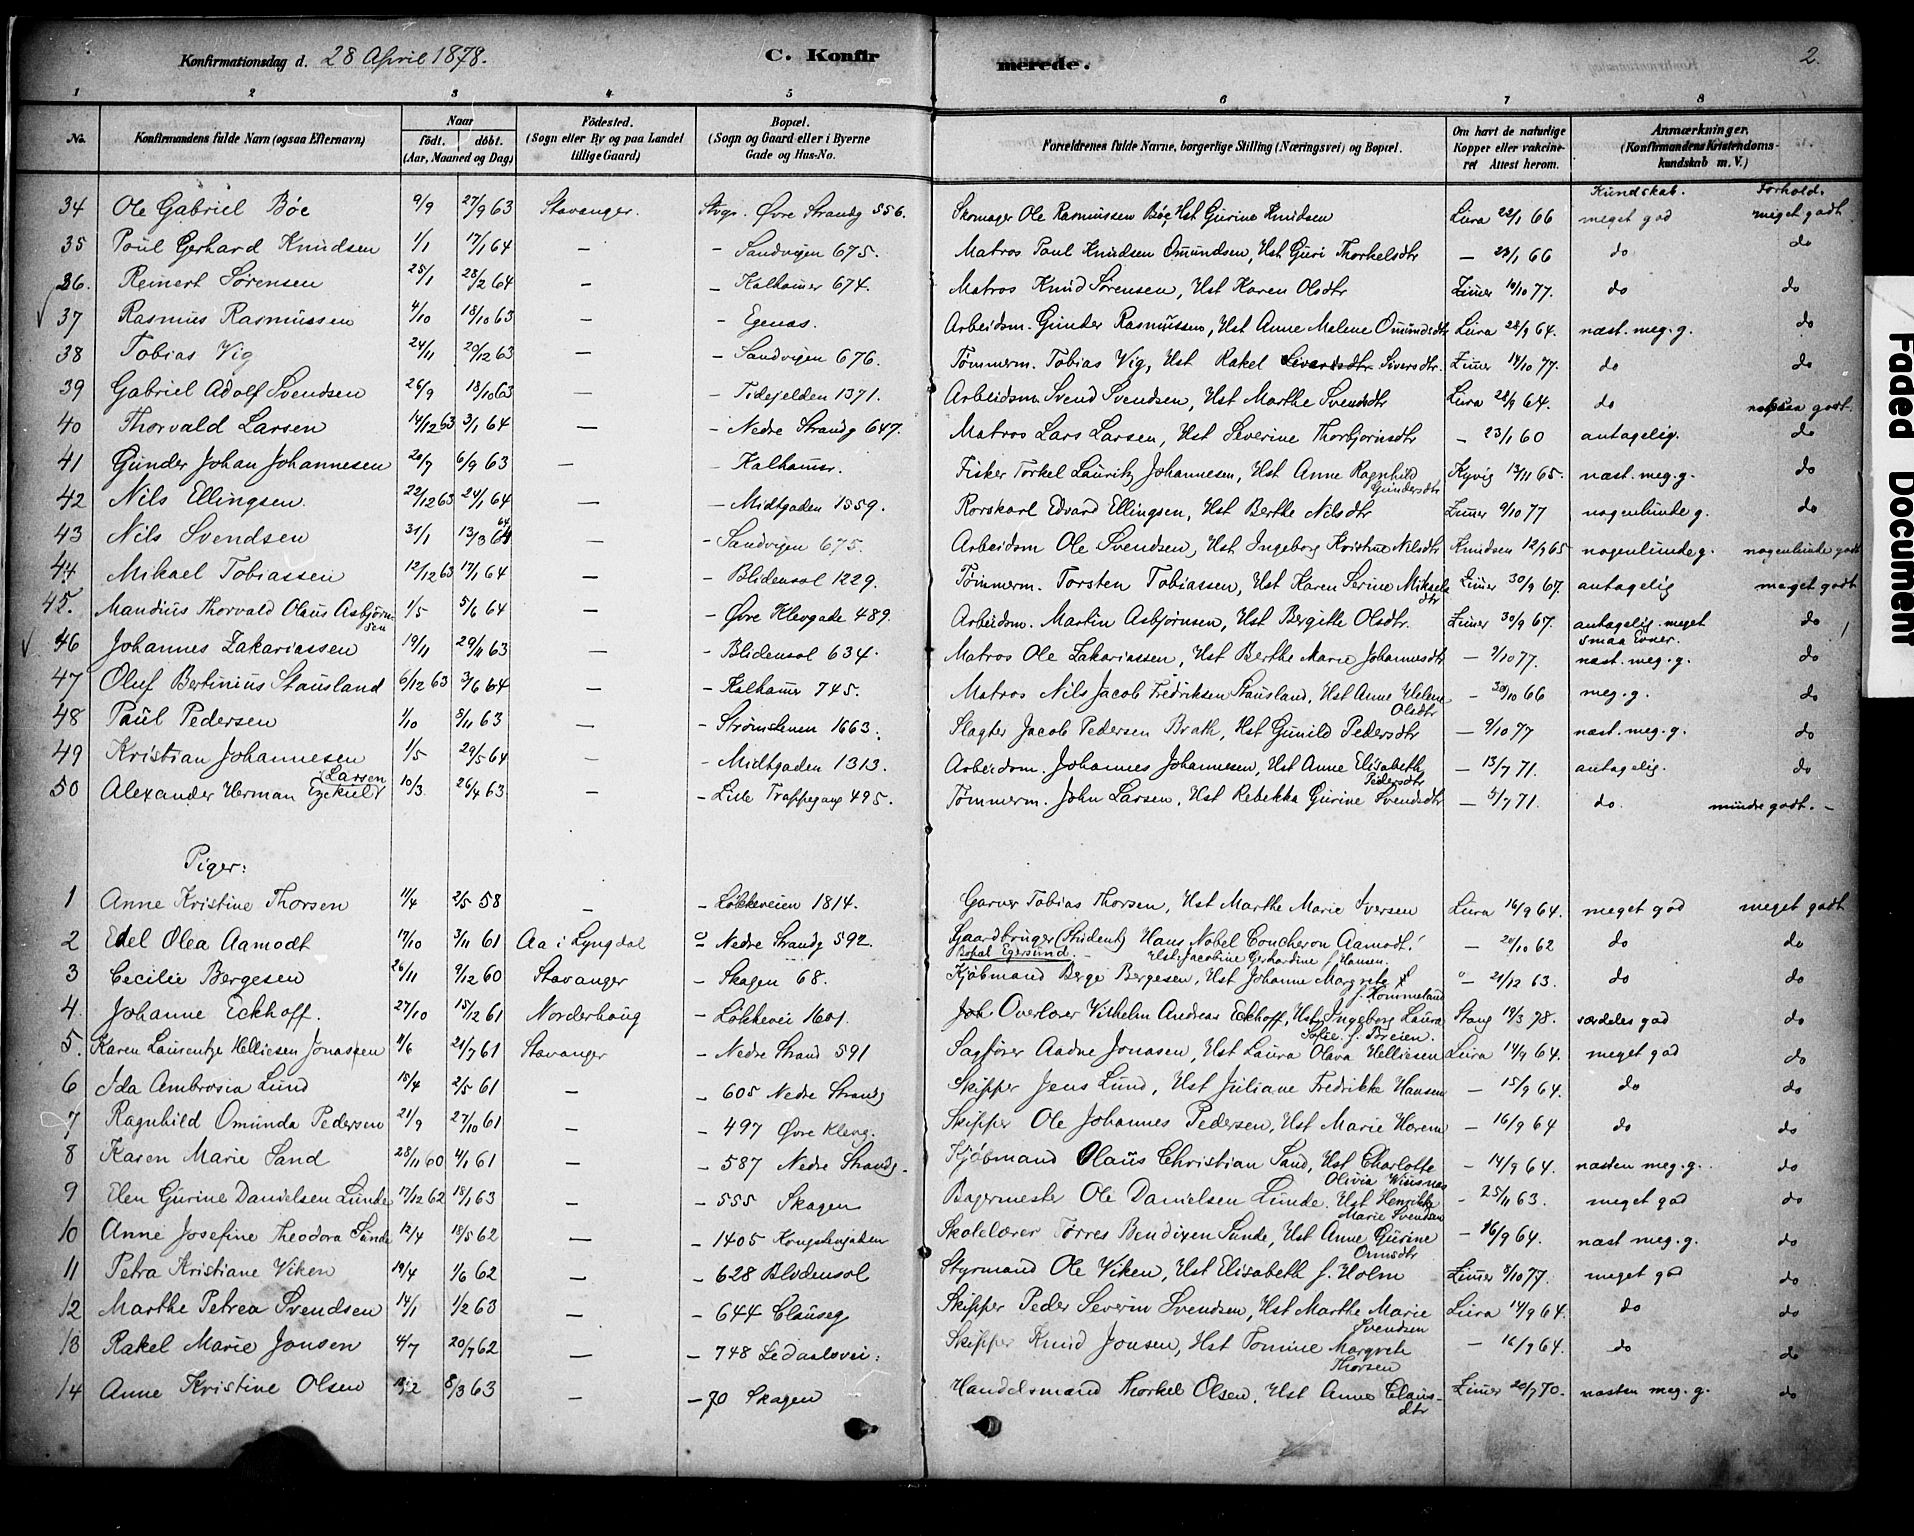 Konfirmationsdag d. 28 April 1878. C. Konfirmerede. 2.
1 2 3 4 5 6 7 8
No. Konfirmandens fulde Navn (ogsaa Efternavn) Naar födt. döbt. (Aar, Maaned og Dag) Födested. (Sogn eller By og paa Landet tillige Gaard) Bopæl. (Sogn og Gaard eller i Byerne Gade og Hus-No. Forældrenes fulde Navne, borgerlige Stilling (Næringsvei) og Bopæl. Om havt de naturlige Kopper eller vakcineret Attest herom. Anmærkninger. (Konfirmandens Kristendomskundskab m. V.)
Kundskab. Forhold.
34 Ole Gabriel Bøe 9/9 27/9 63 Stavanger. Stvgr. Øvre Strandg 556. Skomager Ole Rasmussen Bøe, Hst Gurine Knudsen Lura 22/1 66 meget god meget godt
35 Poul Gerhard Knudsen 1/1 17/1 64 — – Sandvigen 675. Matros Paul Knudsen Omundsen, Hst Guri Thorkelsdtr — 23/1 66 do do
36. Reinert Sørensen 25/1 28/2 64 — – Kalhamer 674. Matros Knud Sørensen, Hst Karen Olsdtr Zimer 19/10 77. do do
37 Rasmus Rasmussen 4/10 18/10 63 — – Egenæs. Arbeidsm. Gunder Rasmussen, Hst Anne Malene Omundsdtr Lura 28/9 64. næst. meg. g. do
38 Tobias Vig 24/11 20/12 63 — – Sandvigen 676. Tømmerm. Tobias Vig, Hst Rakel Siversdtr. Zimer 19/10 77. do do
39 Gabriel Adolf Svendsen 26/9 18/10 63 — – Tidejelden 1371. Arbeidsm. Svend Svendsen, Hst Marthe Svendsdtr Lura 28/9 64. do godt.
40 Thorvald Larsen 14/12 63 3/1 64 — – Nedre Strandg 647. Matros Lars Larsen, Hst Severine Thorbjørnsdtr — 23/1 60 antagelig. do
41 Gunder Johan Johannesen 20/7 6/9 63 — – Kalhamer. Fisker Torkel Lauritz Johannesen, Hst Anne Ragnhild Gundersdtr Kyvig 13/11 65. næst. meg. g. do
42 Nils Ellingsen. 22/12 63 24/1 64 — – Midtgaden 1559. Rorskarl Edvard Ellingsen, Hst Berthe Nilsdtr Zimer 9/10 77 nogenlunde g. do
43 Nils Svendsen 31/1 13/3 64 — – Sandvigen 675. Arbeidsm Ole Svendsen, Hst Ingeborg Kristine Nilsdtr Knudsen 12/9 65 nogenlunde g. nogenlunde godt
44 Mikael Tobiassen 12/12 63 17/1 64 — – Blidensol 1229. Tømmerm. Torsten Tobiassen, Hst Karen Serine Mikaelsdtr Zimer 30/9 67. antagelig meget godt
45. Mandius Thorvald Olaus Asbjørnsen 1/5 5/6 64 — – Øvre Klevgade 489. Arbeidsm. Martin Asbjørnsen, Hst Bergitte Olsdtr. Zimer 30/9 67. antagelig. meget smaa Evner. do
46 Johannes Zakariassen 19/11 29/11 63 — – Blidensol 634. Matros Ole Zakariassen, Hst Berthe Marie Johannesdtr — 9/10 77. næst. meg. g. do
47 Oluf Bertinius Stausland 6/12 63 3/6 64 — – Kalhamer 745. Matros Nils Jacob Fredriksen Stausland, Hst Anne Helene Olsdtr — 30/10 66 meg. g. do
48 Paul Pedersen 1/10 8/11 63 — – Strømstenen 1663. Slagter Jacob Pedersen Brath, Hst Gunild Pedersdtr — 9/10 77 næst. meg. g. do
49 Kristian Johannesen 1/5 29/5 64 — – Midtgaden 1313. Arbeidsm. Johannes Johannesen, Hst Anne Elisabeth Pedersdtr — 13/7 71. antagelig. do
50 Alexander Herman Ezekiel Larsen 10/3 26/4 63 — – Lille Trappegang 495. Tømmerm. John Larsen, Hst Rebekka Gurine Svendsdtr — 5/7 71. do. mindre godt. –
Piger:
1 Anne Kristine Thorsen 11/4 2/5 58 — – Løkkeveien 1814. Garver Tobias Thorsen, Hst Marthe Marie Iversen Lura 16/9 64. meget god meget godt
2 Edel Olea Aamodt 17/10 3/11 61 Aa i Lyngdal – Nedre Strandg 592. Gaardbruger (Student) Hans Nobel Concheron Aamodt. Bopæl Egersund. – Hst. Jacobine Gerhardine f. Hansen. — 20/10 62 do do
3 Cecilie Bergesen 26/11 9/12 60 Stavanger – Skagen 68. Kjøbmand Berge Bergesen, Hst Johanne Margrete f. Hommeland " 21/12 63. do do
4. Johanne Eckhoff. 27/10 15/12 61 Norderhoug – Løkkevei 1601. Overlærer Vilhelm Andreas Eckhoff, Hst Ingeborg Laura Sofie. f. Breien. Stang 19/3 78. særdeles god do
5. Karen Laurentze Helliesen Jonassen 11/6 21/7 61 Stavanger – Nedre Strand 591 Sagfører Aadne Jonasen, Hst Laura Olava Helliesen Lura 14/9 64. meget god do
6 Ida Ambrosia Lund 15/4 2/5 61 — – 605 Nedre Strandg Skipper Jens Lund, Hst Juliane Fredrikke Hansen — 15/9 64. do do
7 Ragnhild Omunda Pedersen 21/9 27/10 61 — – 497 Øvre Klevg. Skipper Ole Johannes Pedersen, Hst Marie Horem — 16/9 64 do do
8 Karen Marie Sand 28/11 60 4/1 61 — – 587 Nedre Strandg. Kjøbmand Olaus Christian Sand, Hst Charlotte Olivia Wiisnæs — 14/9 64. næsten meg. g. do
9 Elen Gurine Danielsen Lunde 17/12 62 18/1 63 — – 555 Skagen Bagermester Ole Danielsen Lunde. Hst Henrikke Marie Svendsen – 25/11 63. meget god do
10 Anne Josefine Theodora Sunde 12/4 18/5 62 — – 1405 Kongstengaden Skolelærer Tørres Bendixen Sunde, Hst Anne Gurine Ormsdtr – 16/9 64. næst meg. g. do
11 Petra Kristiane Viken 19/4 1/6 62 — – 628 Blidensol Styrmand Ole Viken, Hst Elisabeth f. Holm Zimer 8/10 77. meget god do
12 Marthe Petrea Svendsen 14/1 1/2 63 — – 644 Clauseg Skipper Peder Severin Svendsen, Hst Marthe Marie Svendsen Lura 14/9 64. do do
13 Rakel Marie Jonsen 4/7 20/7 62 — – 748 Ledaalsvei. Skipper Knud Jonsen, Hst Tomine Margrete Thorsen — 16/9 64. do do
14 Anne Kristine Olsen 8/3 63 — – 70 Skagen Handelsmand Thorkel Olsen, Hst Anne Clausdtr Zimer 20/7 70. næsten meg. g. do
Faded Document